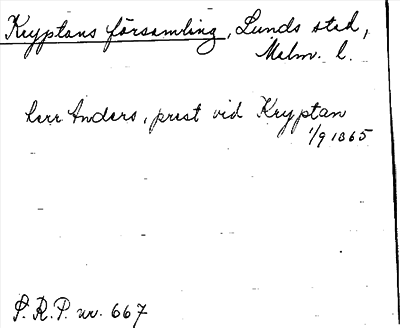 Kryptans församling, Lunds stad,
Malm. l.
herr Anders, prest vid Kryptan
1/9 1365
S. R. P. nr. 667